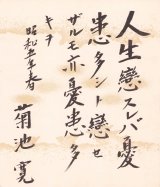 人生戀スレバ憂
患多シト戀せ
ザルモ亦憂患多
キヲ
昭和五年春
菊池寛